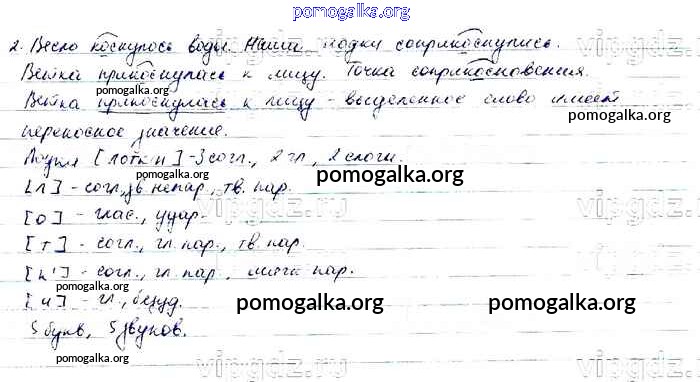 pomogalka.org
2. Весло коснулось воды. Наши лодки соприкоснулись.
Ветка прикоснулась к лицу. Точка соприкосновения.
pomogalka.org
Ветка прикоснулась к лицу - выделенное слово имеет
pomogalka.org pomogalka.org
переносное значение.
Лодки [лотк'и] - 3 согл., 2 гл., 2 слога.
[л] - согл., зв. непар., тв. пар.
pomogalka.org
[о] - глас., удар.
vipgdz.ru vipgdz.ru
[т] - согл., гл. пар., тв. пар.
[к'] - согл., гл. пар., мягк. пар.
[и] - гл., безуд.
pomogalka.org pomogalka.org pomogalka.org
5 букв, 5 звуков.
pomogalka.org
vipgdz.ru vipgdz.ru